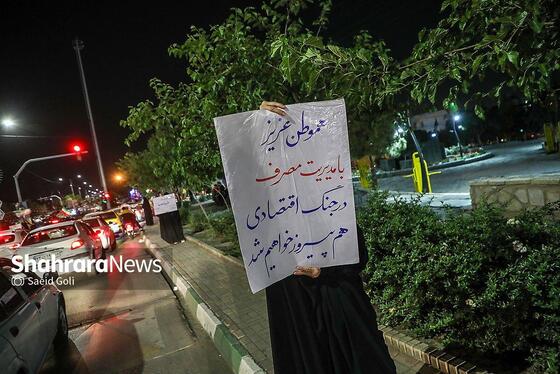 هموطن عزیز
با مدیریت مصرف
در جنگ اقتصادی
هم پیروز خواهیم شد
ShahraraNews
Saeid Goli